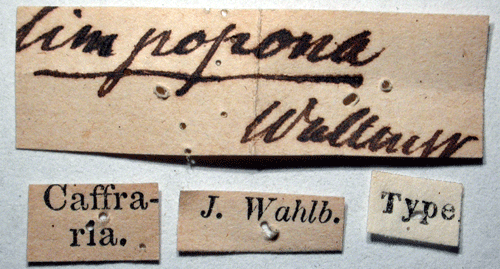 limpopona
Wallengr
Caffra-
ria.
J. Wahlb.
Type.